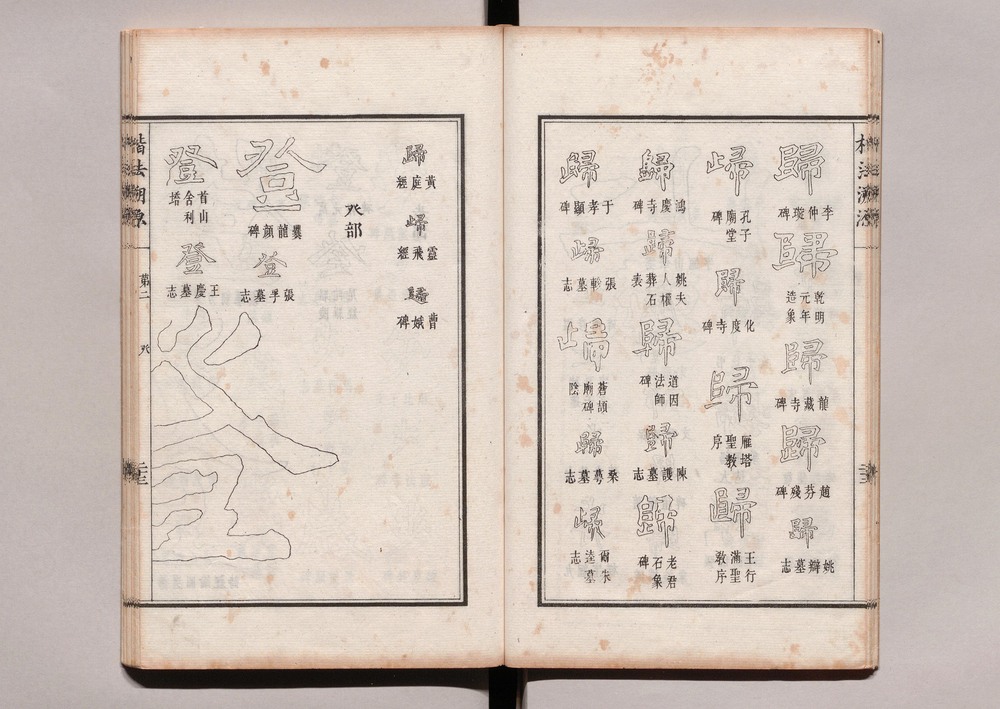 楷法溯源
歸
李仲璇碑
歸
乾明元年造象
歸
龍藏寺碑
歸
趙芬殘碑
歸
姚辯墓志
歸
孔子廟堂碑
歸
化度寺碑
歸
雁塔聖教序
歸
王行滿聖教序
歸
鴻慶寺碑
歸
姚夫人權葬石表
歸
道因法師碑
歸
陳護墓志
歸
老君石象碑
歸
于孝顯碑
歸
張軫墓志
歸
蒼頡廟碑陰
歸
桑萼墓志
歸
爾朱逵墓志
歸
黃庭經
歸
靈飛經
歸
曹娥碑
癶部
登
爨龍顏碑
登
張孚墓志
登
首山舍利塔
登
王慶墓志
楷法溯源
第二
癶
二三